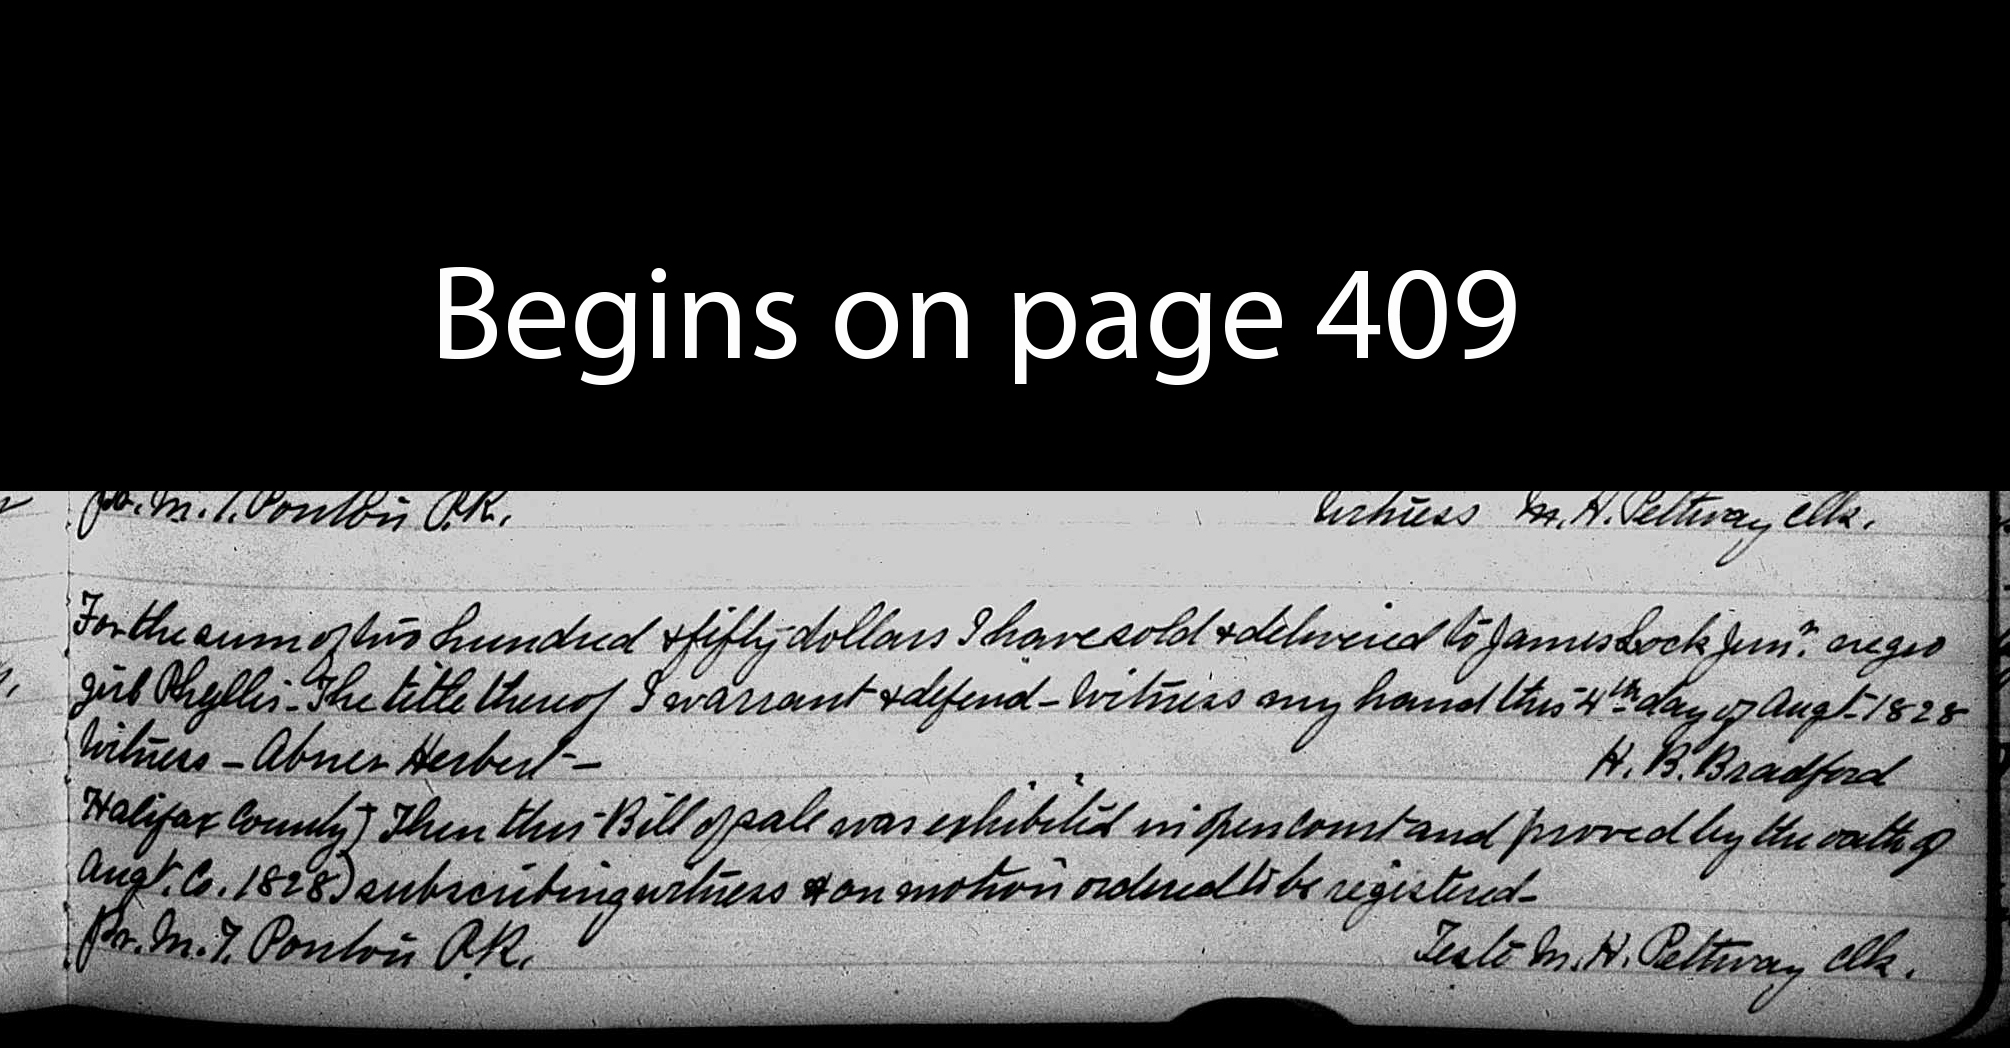 Begins on page 409
pr. M. T. Ponton P.R. Witness M. H. Pettway Clk.
For the sum of two hundred & fifty dollars I have sold & delivered to James Lock Junr. negro
girl Phyllis - The title thereof I warrant & defend - Witness my hand this 4th day of Augt. 1828
Witness - Abner Herbert - H. B. Bradford
Halifax County } Then this Bill of sale was exhibited in open court and proved by the oath of
Augt. Co. 1828 ) subscribing witness & on motion ordered to be registered -
Pr. M. T. Ponton P.R. Teste M. H. Pettway Clk.